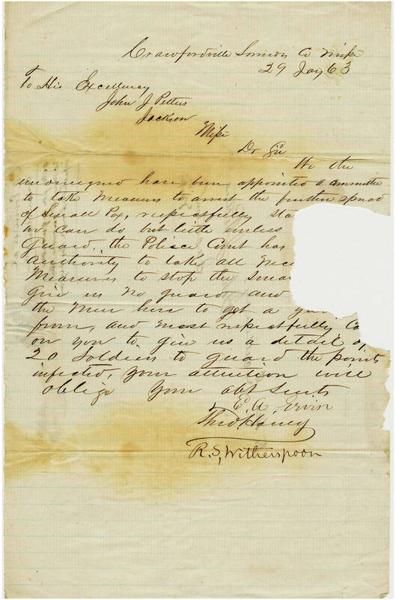 Crawfordville Lowndes Co Miss
29 Jany 63
To His Excellency
John J Pettus
Jackson
Miss
Dr Sir
We the
undersigned have been appointed a committee
to take Measures to arrest the further spread
of Small Pox, respectfully sta
we can do but little unless
Guard, the Police Court has
Authority to take all Nec
Measures to stop the Small
Give us No guard, and
the Men here to get a gu
from, and most respectfully Ca
on you to give us a detail of
20 Soldiers to guard the points
infected, your attention will
oblige Your obt Servts
E. A. Ervin
R. S. Witherspoon